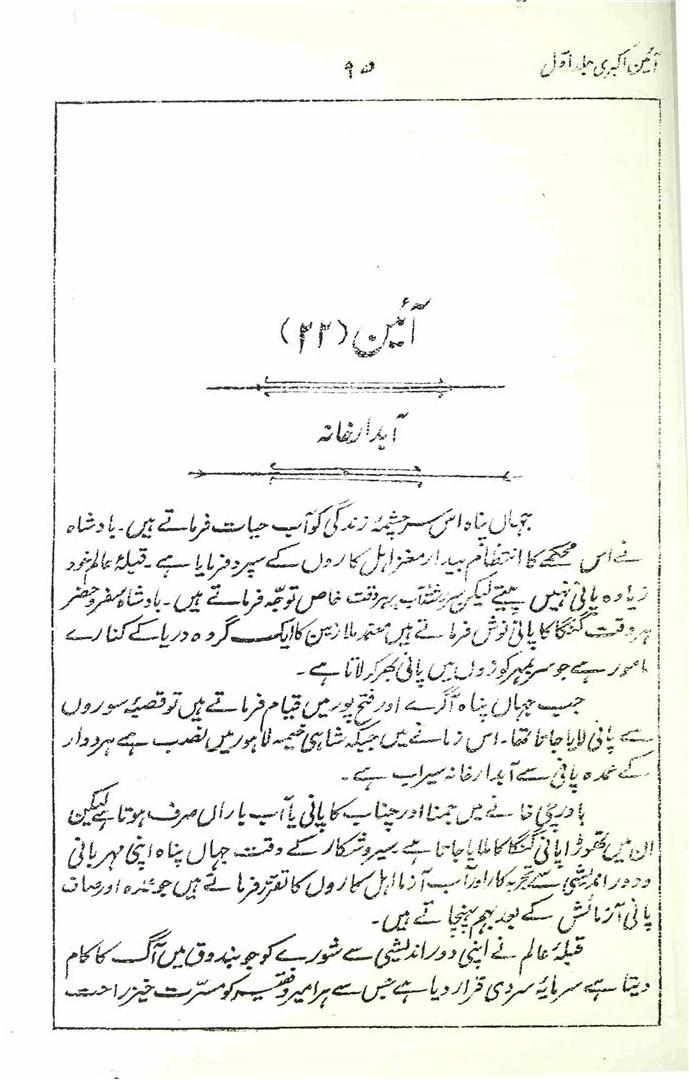 آئین اکبری جلد اول
۹۵
آئین (۲۲)
آبدار خانہ
جہاں پناہ اس سرچشمۂ زندگی کو آب حیات فرماتے ہیں۔ بادشاہ
نے اس محکمے کا انتظام بیدار مغز اہل کاروں کے سپرد فرمایا ہے۔ قبلۂ عالم خود
زیادہ پانی نہیں پیتے لیکن سررشتۂ آب پر ہر وقت خاص توجہ فرماتے ہیں۔ بادشاہ سفر و حضر
ہر وقت گنگا کا پانی نوش فرماتے ہیں معتمد ملازمین کا ایک گروہ دریا کے کنارے
مامور ہے جو سربمہر کوزوں میں پانی بھر کر لاتا ہے۔
جب جہاں پناہ آگرے اور فتح پور میں قیام فرماتے ہیں تو قصبۂ سوروں
سے پانی لایا جاتا تھا۔ اس زمانے میں جبکہ شاہی خیمہ لاہور میں نصب ہے ہردوار
کے عمدہ پانی سے آبدار خانہ سیراب ہے۔
باورچی خانے میں جمنا اور چناب کا پانی یا آب باراں صرف ہوتا ہے لیکن
ان میں تھوڑا پانی گنگا کا ملایا جاتا ہے سیر و شکار کے وقت جہاں پناہ اپنی مہربانی
و دور اندیشی سے تجربہ کار اور آب آزما اہل کاروں کا تقرر فرماتے ہیں جو عمدہ اور صاف
پانی آزمائش کے بعد بہم پہنچاتے ہیں۔
قبلۂ عالم نے اپنی دور اندیشی سے شورے کو جو بندوق میں آگ کا کام
دیتا ہے سرمایۂ سردی قرار دیا ہے جس سے ہر امیر و فقیر کو مسرت خیز راحت